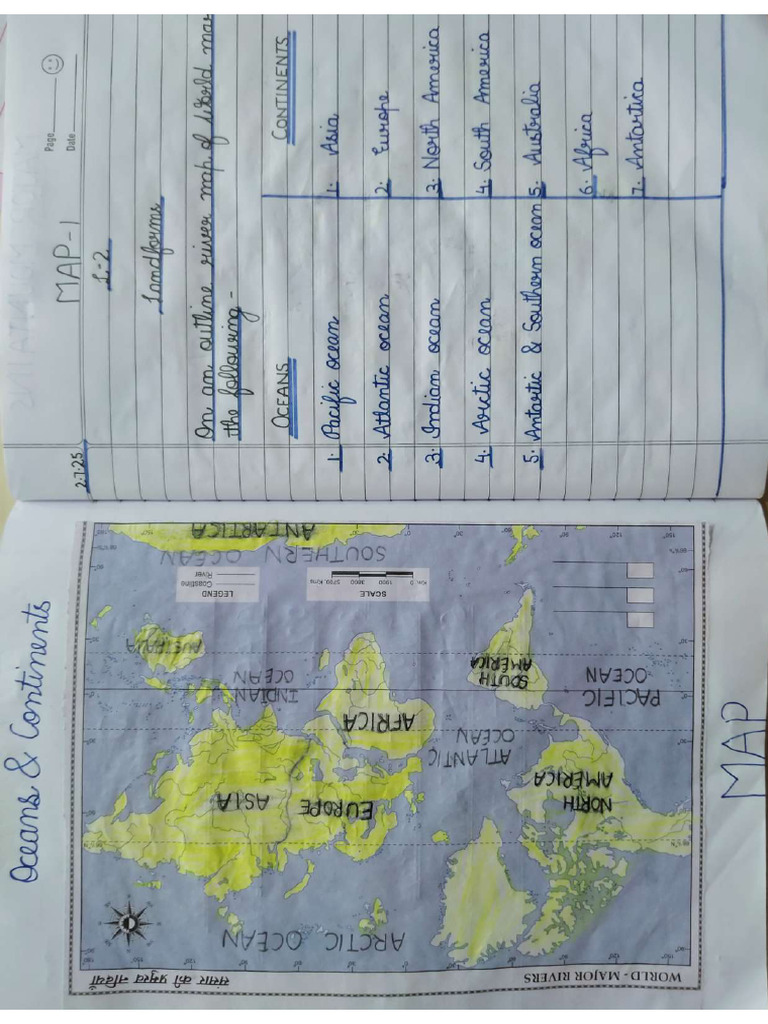 Page
Date
MAP-1
2.7.25
L-2
Landforms
On an outline river map of World mar
the following -
OCEANS
CONTINENTS
1. Pacific ocean
1. Asia
2. Atlantic ocean
2. Europe
3. Indian ocean
3. North America
4. Arctic ocean
4. South America
5. Antartic & Southern ocean
5. Australia
6. Africa
7. Antartica
Oceans & Continents
WORLD - MAJOR RIVERS
संसार की प्रमुख नदियाँ
ARCTIC OCEAN
NORTH
AMERICA
EUROPE
ASIA
ATLANTIC
OCEAN
AFRICA
PACIFIC
OCEAN
INDIAN
OCEAN
SOUTH
AMERICA
AUSTRALIA
SCALE
Km. 0 1900 3800 5700 Kms.
LEGEND
Coastline
River
SOUTHERN OCEAN
ANTARTICA
MAP